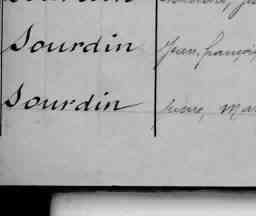 Sourdin Jean, françois,
Sourdin Pierre, Mar